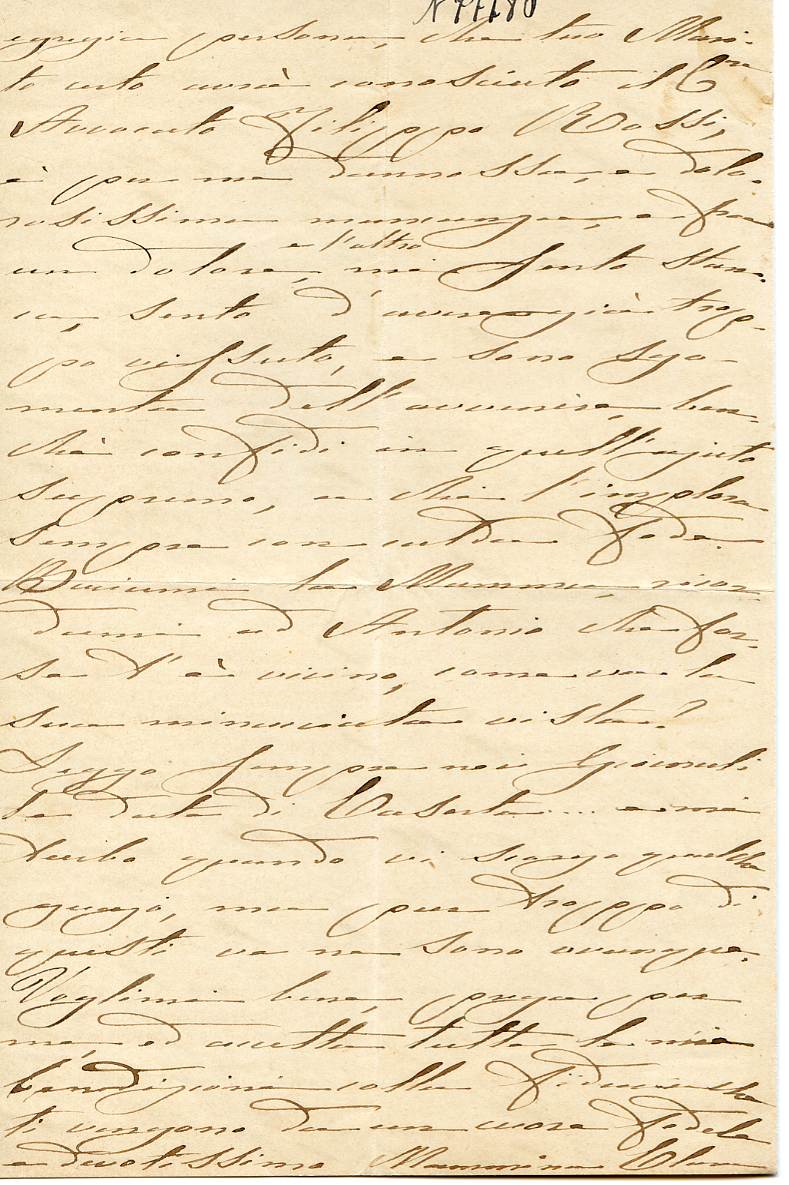 N 77180
egregia persona, che tuo Mari-
to certo avrà conosciuto il C
Avvocato Filippo Rossi,
è per me dannossa, e dolo-
rosissima mancanza, e fra
un dolore, e l'altro mi sento stan-
ca, sento d'avere già trop-
po vissuto, e sono sgo-
menta dell'avvenire, ben-
chè confidi in quell'ajuto
supremo, e che l'imploro
sempre con calda fede.
Baciami la Mamma, ricor-
dami ad Antonio che for-
se t'è vicino, come va la
sua minacciata vista?
Leggo sempre nei Giornali
la data di Caserta... e mi
turbo quando vi scorgo qualche
guajo, ma pur troppo di
questi ve ne sono ovunque.
Voglimi bene, prega per
me, ed accetta tutte le mie
benedizioni colla fiducia che
ti vengono da un cuore fedele
e devotissimo Mammina